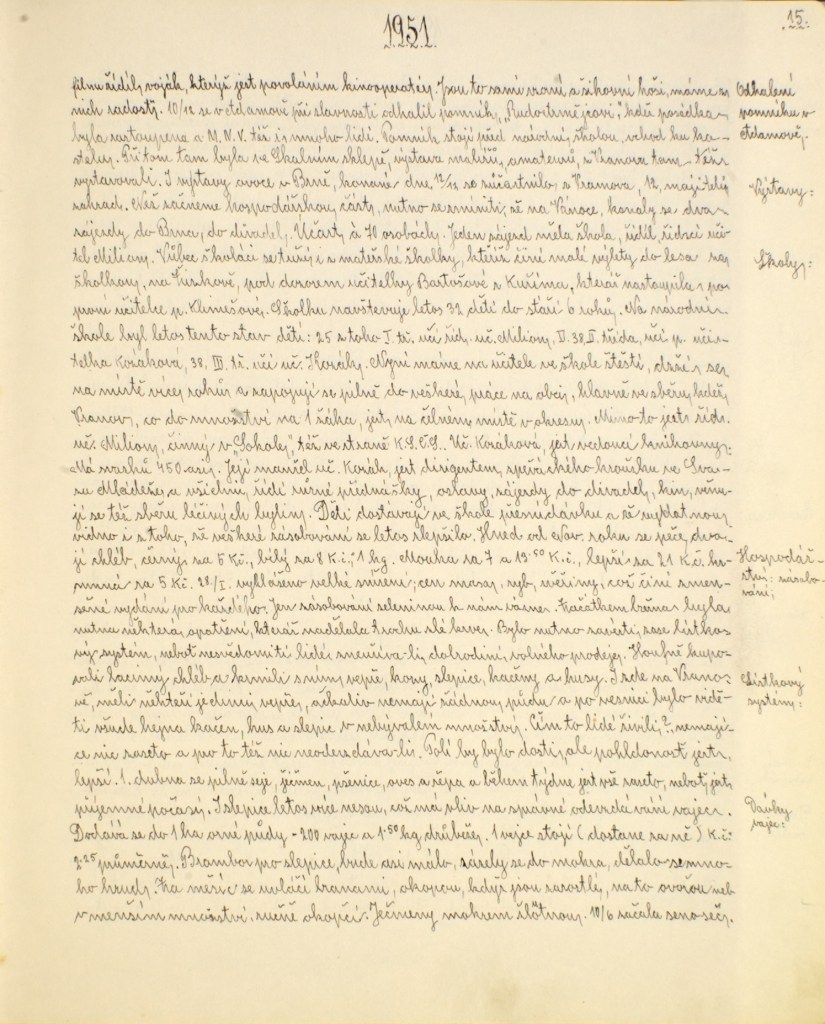 1951.
15.
filmu řídil, voják, kterýž jest povoláním kinooperatér. Jsou to samí vzorní a šikovní hoši, máme z
nich radost. 10/12 se v Adamově při slavnosti odhalil pomník, "Rudoarmějcovi" kdež posádka
byla zastoupena a M.N.V. též i mnoho lidí. Pomník stojí před národní školou, vchod ku ka-
stelu. Při tom tam byla ve Skalním sklepě, výstava malířů, amateurů, z Vranova tam též
vystavovali. I výstavy ovoce v Brně, konané dne 12/12 se súčastnilo z Vranova, 12, majitelů
zahrad. Než začneme hospodářskou částí, nutno se zmíniti, že na Vánoce, konaly se dva
zájezdy do Brna, do divadel. Účast à 70 osobách. Jeden zájezd měla škola, řídil, řídící uči-
tel Milion. Vůbec školáci se tuží, i z mateřské školky, kteříž činí malé výlety do lesa za
školkou, na Liskově, pod dozorem učitelky Bartošové z Kuřima, kteráž nastoupila po
první učitelce p. Klimešové. Školku navštěvuje letos 32 dětí do stáří 6 roků. Na národní
škole byl letos tento stav dětí: 25 z toho I. tř. učí říd. uč. Milion, II. 38, II třída, učí p. uči-
telka Kozáková, 38, III. tř. učí uč. Kozák. Nyní máme na učitele ve škole štěstí, drží se
na místě více roků a zapojují se pilně do veškeré práce na obci, hlavně ve sběru, kdež
Vranov, co do množství na 1 žáka, jest na čelném místě v okresu. Mimo to jest říd.
uč. Milion, činný v "Sokole", též ve straně K.S.Č.. Uč. Kozáková, jest vedoucí knihovny.
Má svazků 450 asi. Její manžel uč. Kozák, jest dirigentem, spěváckého kroužku ve Sva-
zu Mládeže, a všichni, řídí různé přednášky, oslavy, zájezdy do divadel, kin, věnu-
jí se též sběru léčivých bylin. Děti dostávají ve škole přesnídávku a to vydatnou,
vidno i z toho, že veškeré zásobování se letos zlepšilo. Hned od Nov. roku se peče, dvo-
jí chléb, černý, za 5 Kč., bílý za 8 Kč., 1 kg. Mouka za 7 a 13.50 Kč., lepší za 21 Kč. hr
za 5 Kč. 28/I. vyhlášeno velké snížení, cen masa, ryb, uzeniny, což činí zmen-
šené vydání pro každého. Jen zásobování zeleninou k nám vázne. Začátkem března byla
nutna některá, opatření, kteráž nadělala trochu zlé krve. Bylo nutno zavésti, zase lístko-
vý systém, neboť nesvědomití lidé, zneužíva-li, dobrodiní, volného prodeje. Houfně kupo-
vali laciný chléb a krmili s ním, vepře, kozy, slepice, kačeny a husy. I zde na Vrano-
vě, měli někteří jediní, vepře, ačkoliv nemají žádnou půdu a po vesnici bylo vidě-
ti všude hejna kačen, hus a slepic v nebývalém množství. Čím to lidé živili,? nemají-
ce nic zaseto a pro to též nic neodevzdáva-li. Polí by bylo dosti, ale pohodlnost jest
lepší. 1. dubna se pilně seje, ječmen, pšenice, oves a řepa a během týdne jest vše zaseto, neboť, jest
příjemné počasí. I slepice letos více nesou, což má vliv na správné odevzdávání vajec.
Dodává se do 1 ha orné půdy - 200 vajec a 1.50 kg drůbeže. 1 vejce stojí (dostane za ně) Kč.
2.25 průměrně. Brambor po slepice, bude asi málo, sázely se do mokra, dělalo se mno-
ho hrud. Za měsíc se uvláčí branami, okopou, když jsou zarostlé, na to ovořou neb
v menším množství, ručně okopčí. Ječmeny mokrem žloutnou. 10/6 začala senoseč.
Odhalení
pomníku v
Adamově.
Výstavy:
Školy:
Hospodář-
ství: zásobo-
vání;
Lístkový
systém:
Dávky
vajec: